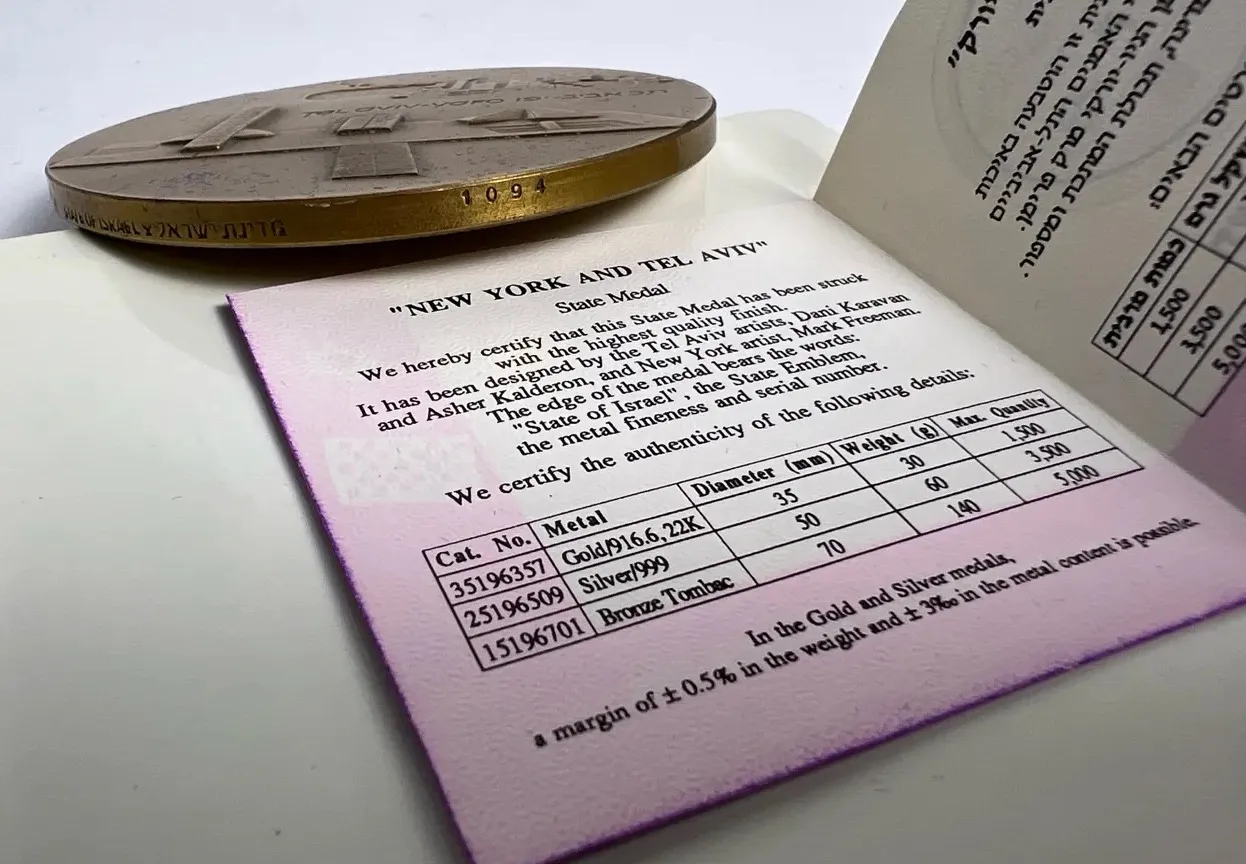 תל אביב-יפו
TEL AVIV-YOFO
1094
STATE OF ISRAEL מדינת ישראל
"NEW YORK AND TEL AVIV"
State Medal
We hereby certify that this State Medal has been struck
with the highest quality finish.
It has been designed by the Tel Aviv artists, Dani Karavan
and Asher Kalderon, and New York artist, Mark Freeman.
The edge of the medal bears the words:
"State of Israel", the State Emblem,
the metal fineness and serial number.
We certify the authenticity of the following details:
Cat. No. Metal Diameter (mm) Weight (g) Max. Quantity
35196357 Gold/916.6,22K 35 30 1,500
25196509 Silver/999 50 60 3,500
15196701 Bronze Tombac 70 140 5,000
In the Gold and Silver medals,
a margin of ± 0.5% in the weight and ± 3‰ in the metal content is possible.
זו הוטבעה באיכות
האמנים התל-אביביים
הניו-יורקי מרק פרימן.
תכולת המתכת ומספור.
הבאים:
כמות מרבית
1,500
3,500
5,000